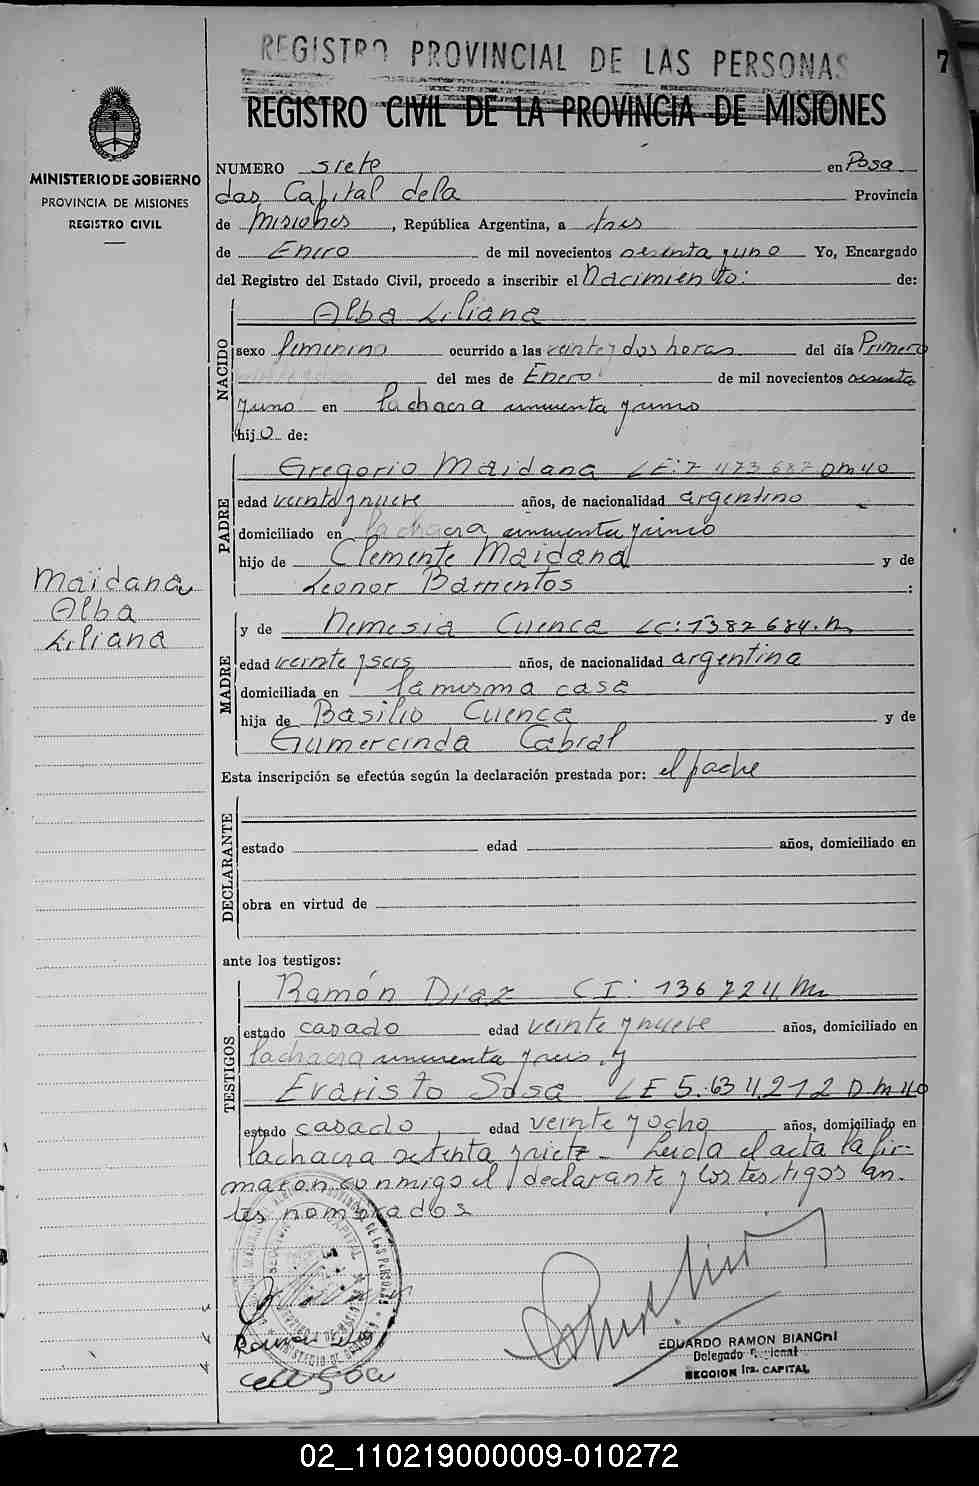 REGISTRO PROVINCIAL DE LAS PERSONAS
7
REGISTRO CIVIL DE LA PROVINCIA DE MISIONES
MINISTERIO DE GOBIERNO
PROVINCIA DE MISIONES
REGISTRO CIVIL
NUMERO siete en Posa
das, Capital de la Provincia
de Misiones, República Argentina, a tres
de Enero de mil novecientos sesenta y uno Yo, Encargado
del Registro del Estado Civil, procedo a inscribir el Nacimiento: de:
NACIDO
Alba Liliana
sexo femenino ocurrido a las veinte y dos horas del día Primero
del mes de Enero de mil novecientos sesenta
y uno en la chacra cincuenta y uno
hijo de:
PADRE
Gregorio Maidana LE: 7.473.687 DM 40
edad veinte y nueve años, de nacionalidad argentino
domiciliado en la chacra cincuenta y uno
hijo de Clemente Maidana y de
Leonor Barrientos :
Maidana
Alba
Liliana
MADRE
y de Nemesia Cuenca LC: 1382684. M
edad veinte y seis años, de nacionalidad argentina
domiciliada en la misma casa
hija de Basilio Cuenca y de
Gumercinda Cabral
Esta inscripción se efectúa según la declaración prestada por: el padre
DECLARANTE
estado edad años, domiciliado en
obra en virtud de
ante los testigos:
TESTIGOS
Ramón Díaz CI: 136724 M
estado casado edad veinte y nueve años, domiciliado en
la chacra cincuenta y y
Evaristo Sosa LE 5.634.212 DM 40
estado casado, edad veinte y ocho años, domiciliado en
la chacra setenta y siete - Leida el acta la fir-
maron conmigo el declarante y los testigos an-
tes nombrados
EDUARDO RAMON BIANCHI
Delegado Regional
SECCION 1ra. CAPITAL
02_110219000009-010272